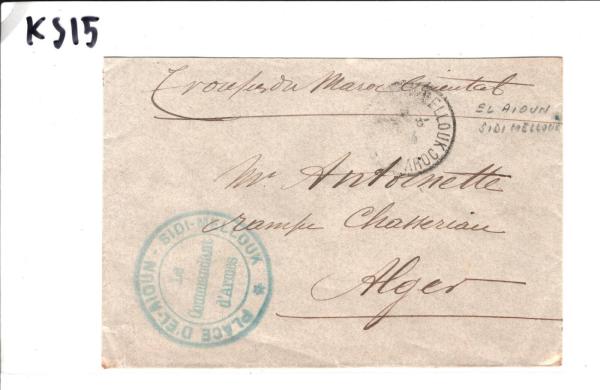 KS15
Troupes du Maroc Oriental
MELLOUK
MAROC
EL AIOUN
SIDI MELLOUK
Mr Antoinette
rampe Chasseriau
Alger
PLACE D'EL-AIOUN - SIDI-MELLOUK *
Le
Commandant
d'Armes